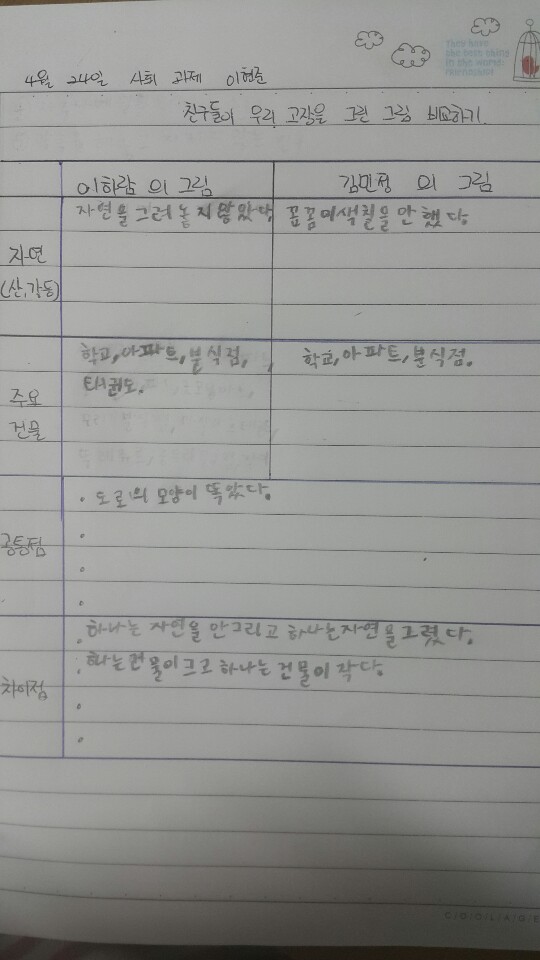 You're here
the best thing
in the world.
happiness
4월 24일 사회 과제 이현준
친구들이 우리 고장을 그린 그림 비교하기
이하람 의 그림 김민정 의 그림
자연을 그려 놓지 않았다. 꼼꼼이색칠을 안 했다.
자연
(산,강등)
학교,아파트,분식점, 학교,아파트,분식점.
태권도.
주요
건물
· 도로의 모양이 똑았다.
공통점
· 하나는 자연을 안그리고 하나는자연을그렸다.
· 하나는건물이크고 하나는 건물이 작다.
차이점